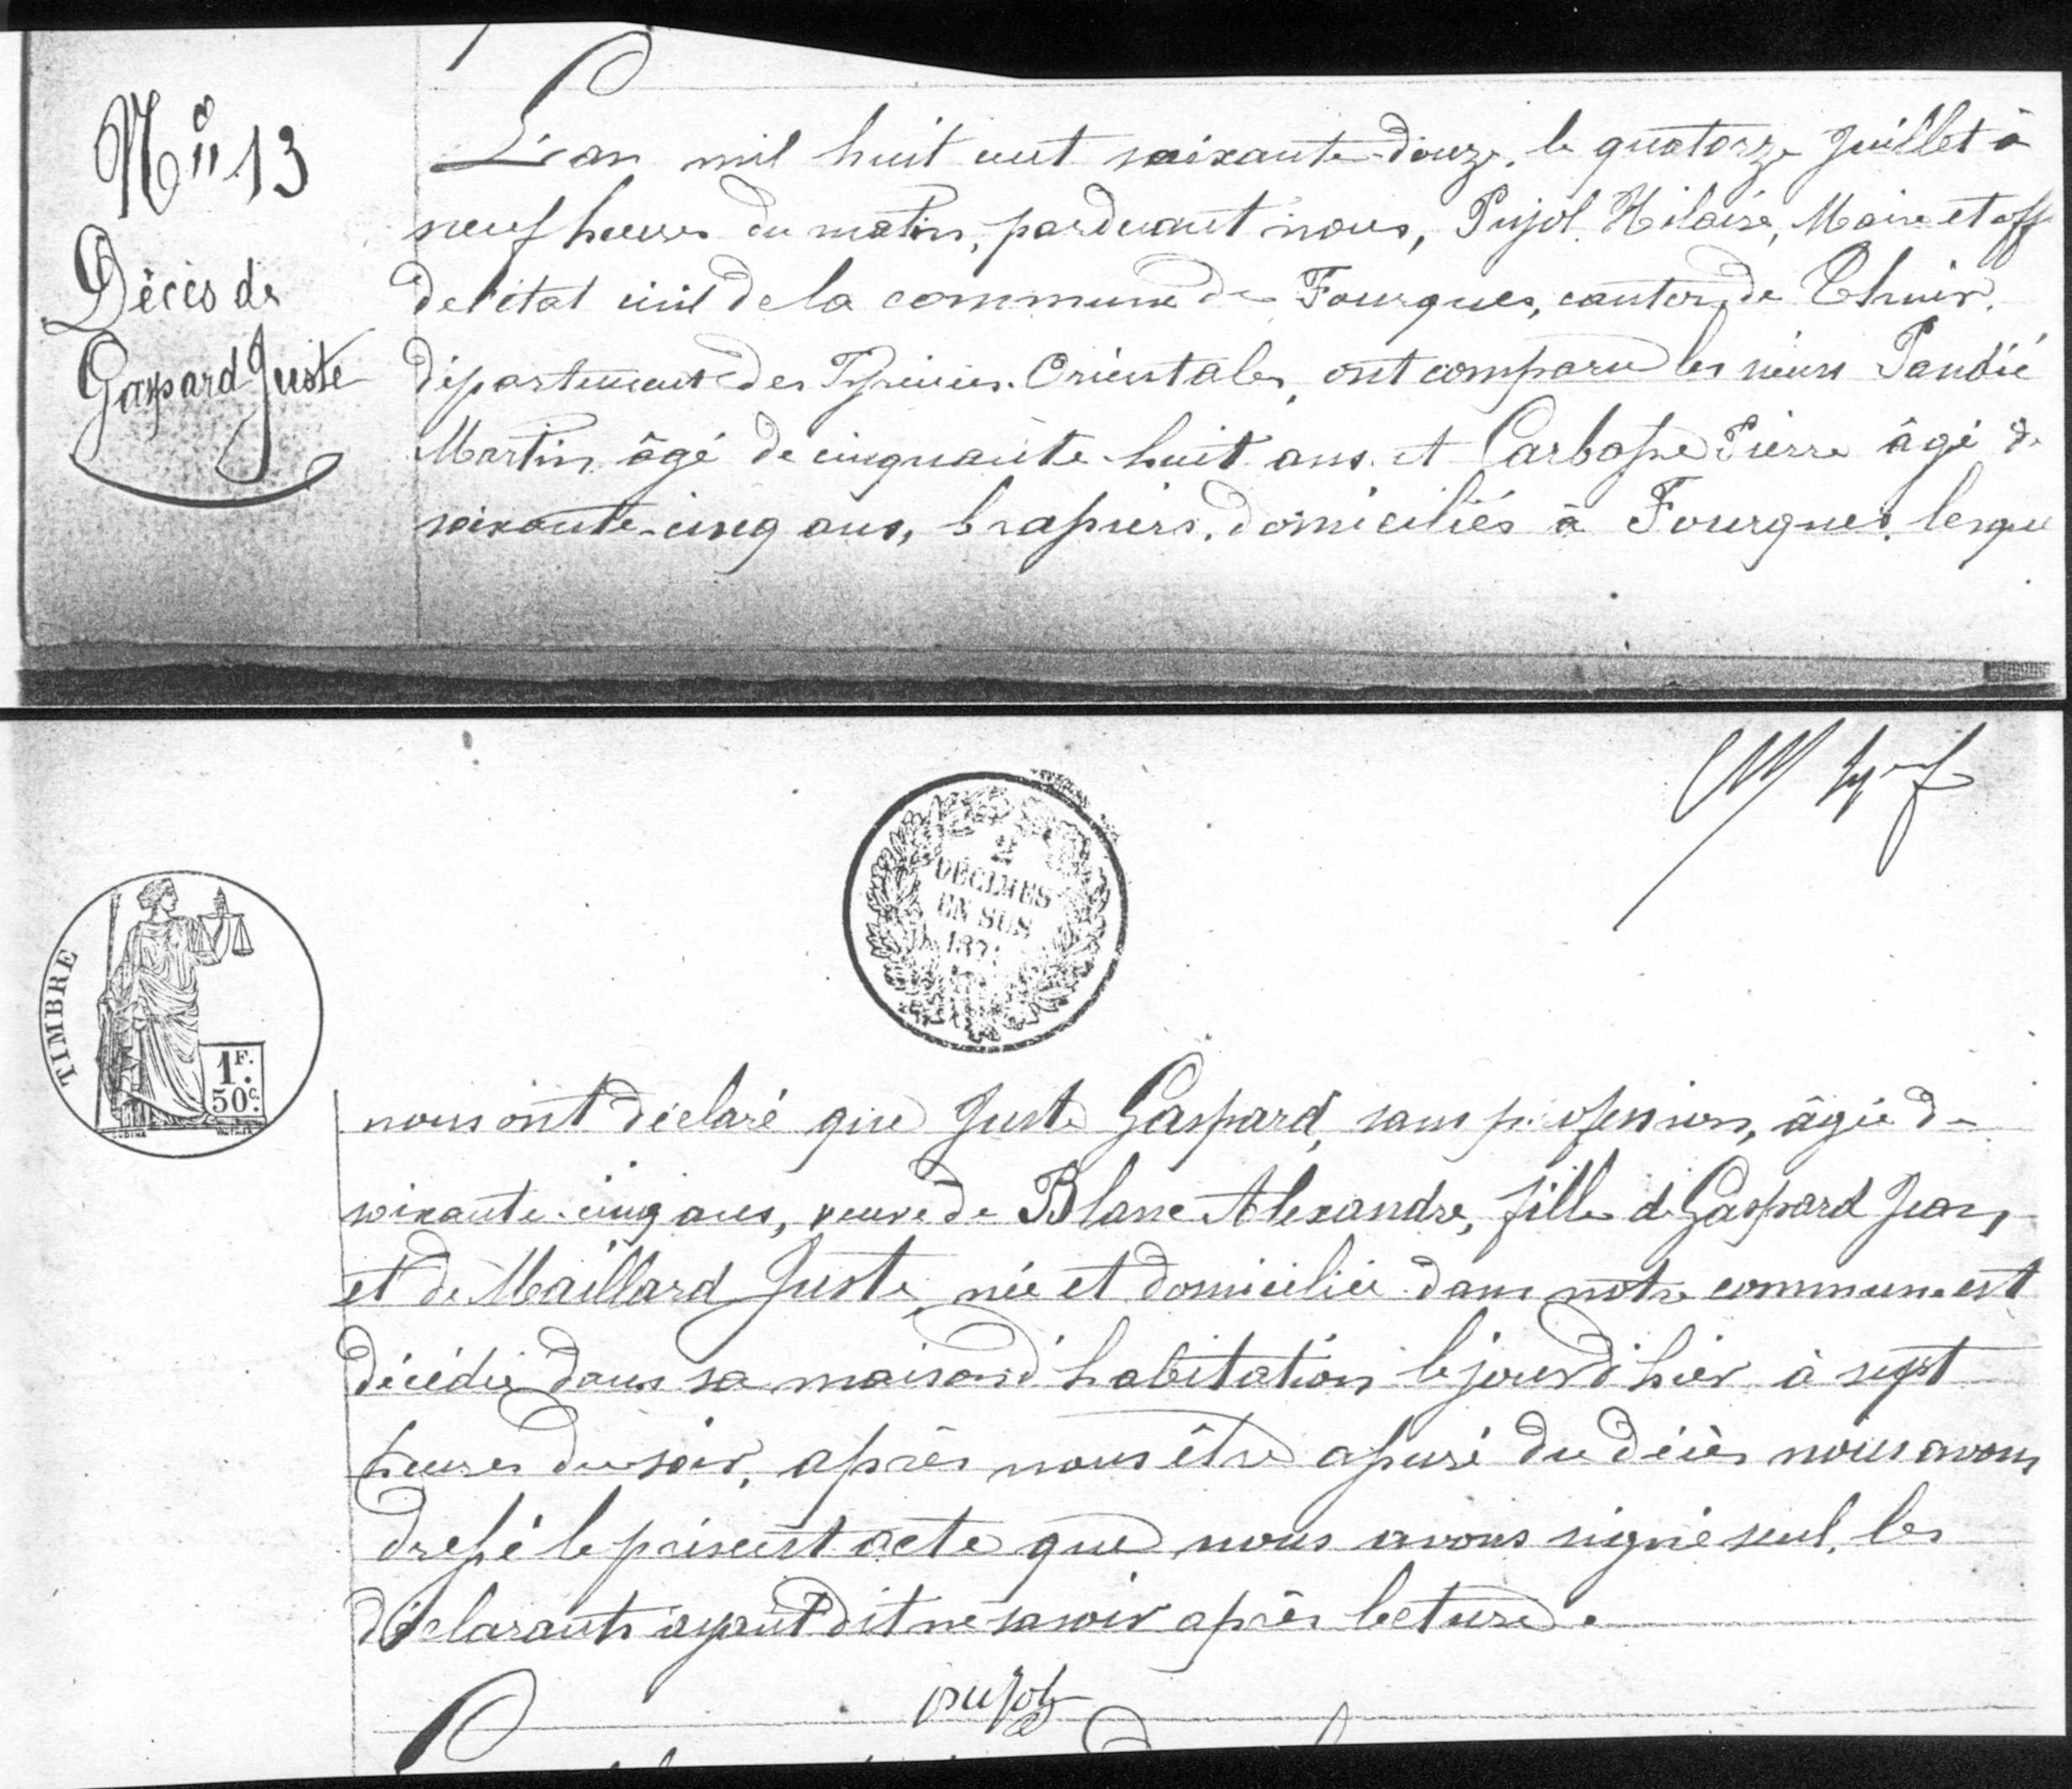 N° 13
Décès de
Gaspard Juste
L'an mil huit cent soixante-douze, le quatorze Juillet à
neuf heures du matin, pardevant nous, Pujol Hilaire, Maire et off
de l'état civil de la commune de Fourques, canton de Thuir,
département des Pyrénées-Orientales, ont comparu les sieurs
Martin âgé de cinquante-huit ans et Carbasse Pierre âgé de
soixante-cinq ans, brassiers, domiciliés à Fourques, lesque
2
DÉCIMES
EN SUS
TIMBRE
1F.
50c.
nous ont déclaré que Juste Gaspard, sans profession, âgée de
soixante-cinq ans, veuve de Blanc Alexandre, fille de Gaspard Jean,
et de Maillard Juste, née et domiciliée dans notre commune est
décédée dans sa maison d'habitation le jour d'hier à sept
heures du soir, après nous être assuré du décès nous avons
dressé le présent acte que nous avons signé seul, les
déclarants ayant dit ne savoir après lecture.
pujol